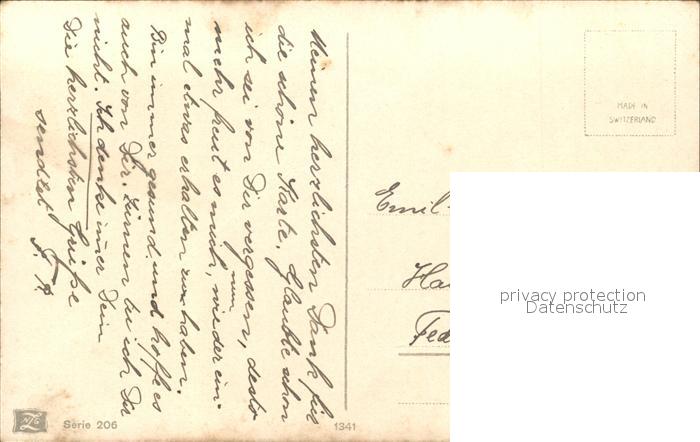 Meinen herzlichsten Dank für
die schöne Karte. Glaubte schon
ich sei von Dir vergessen, desto
mehr freut es mich, wieder ein-
mal etwas erhalten zu haben.
nun
Bin immer gesund und hoffe es
auch von Dir. Zürnen tu ich Dir
nicht. Ich denke im̄er Dein
Die herzlichsten Grüße
sendet
Emil
Ha
Fed
MADE IN
SWITZERLAND
privacy protection
Datenschutz
Serie 206
1341